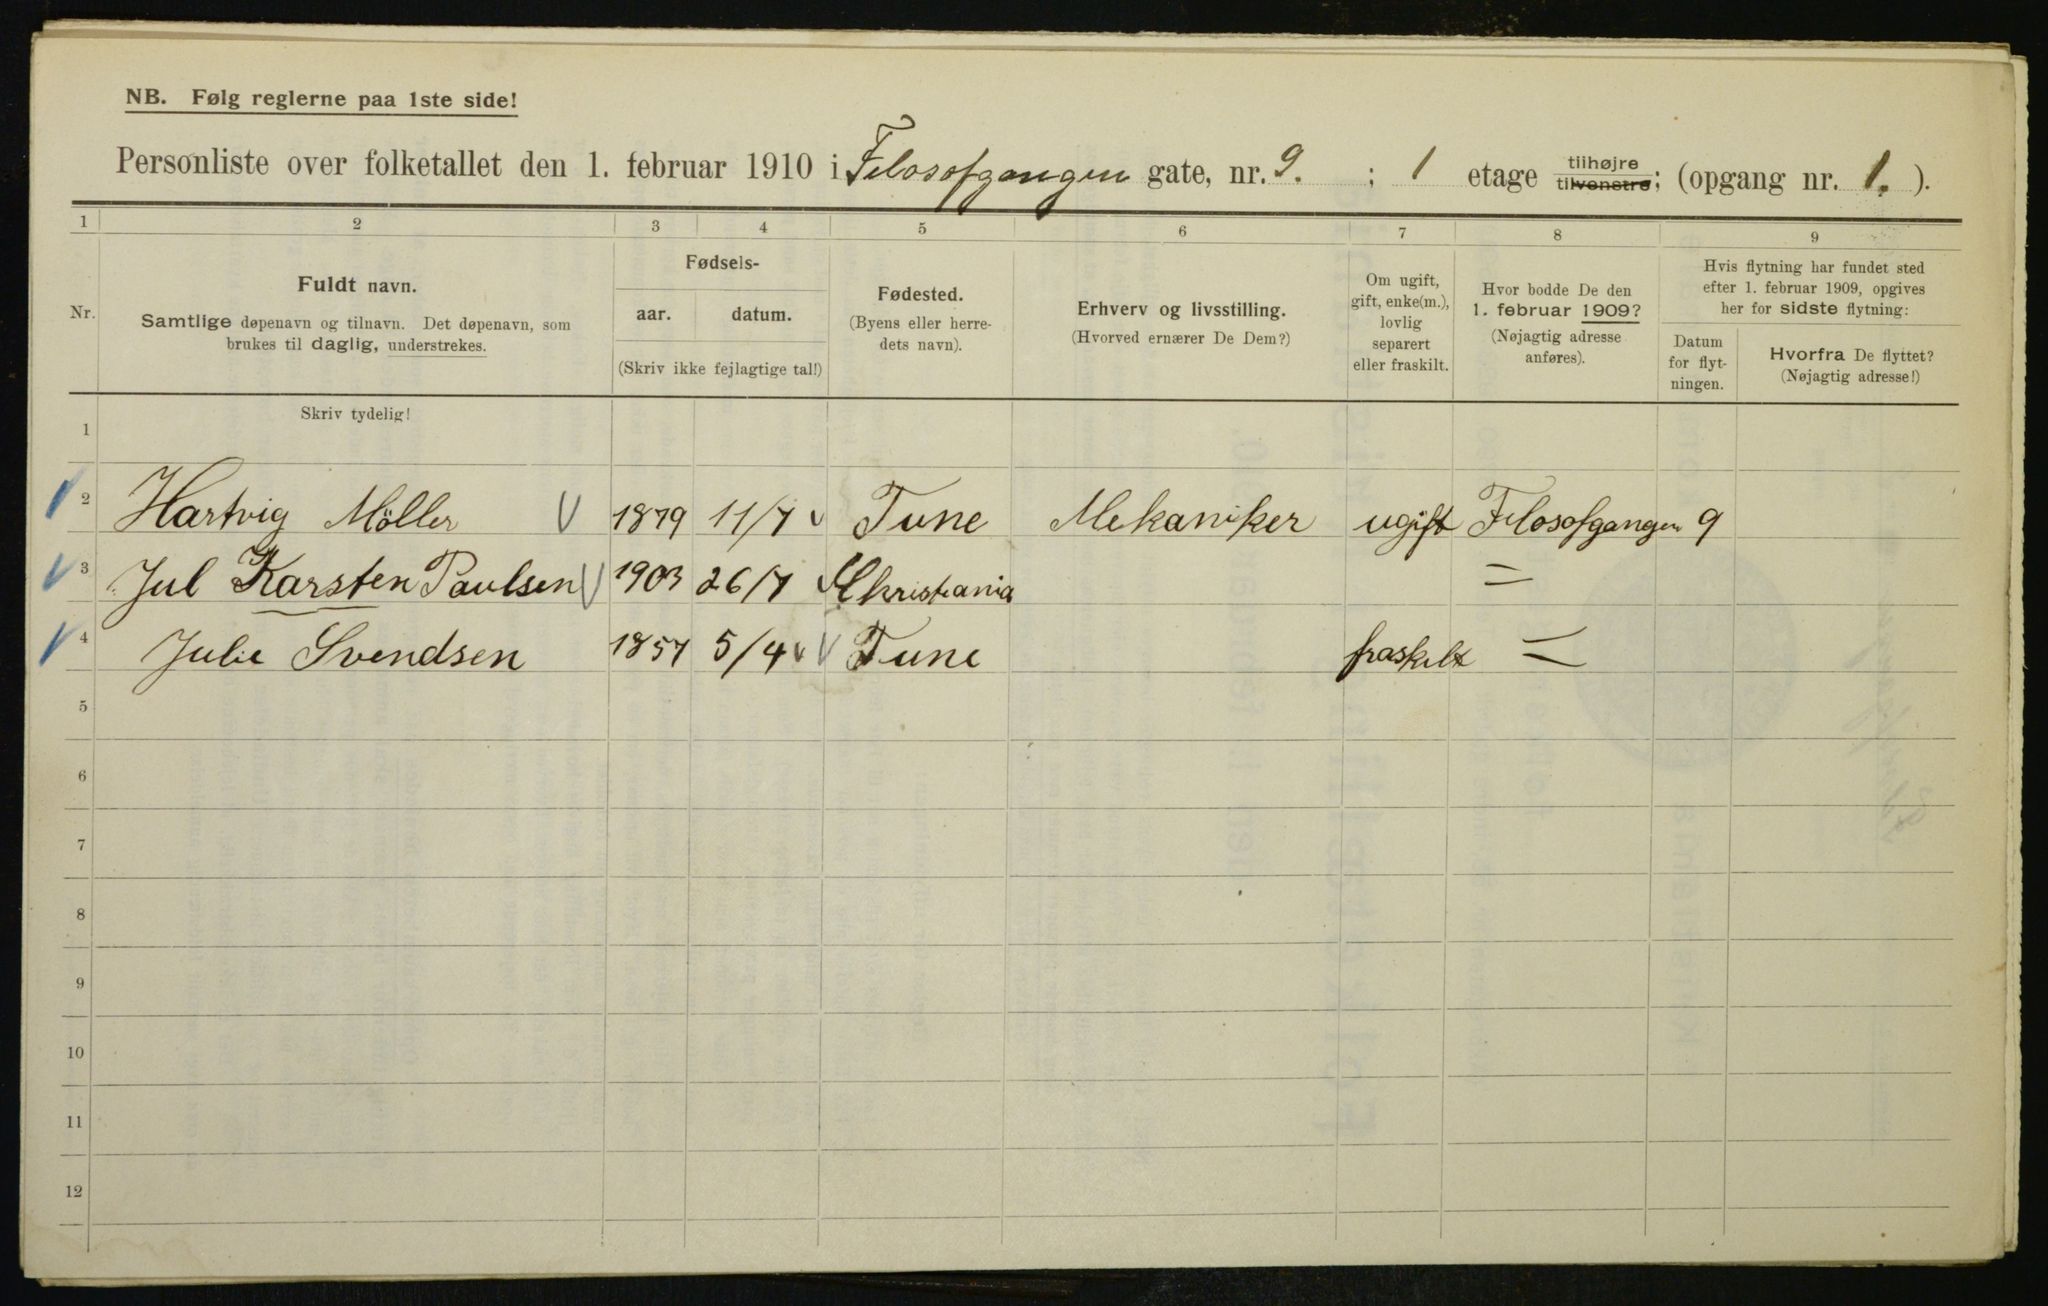 NB. Følg reglerne paa 1ste side!
Personliste over folketallet den 1. februar 1910 i Filosofgangen gate, nr. 9. ; 1 etage tilhøjre tilvenstre; (opgang nr. 1.).
1 2 3 4 5 6 7 8 9
Nr.
Fuldt navn.
Samtlige døpenavn og tilnavn. Det døpenavn, som
brukes til daglig, understrekes.
Fødsels-
aar. datum.
(Skriv ikke fejlagtige tal!)
Fødested.
(Byens eller herre-
dets navn).
Erhverv og livsstilling.
(Hvorved ernærer De Dem?)
Om ugift,
gift, enke(m.),
lovlig
separert
eller fraskilt.
Hvor bodde De den
1. februar 1909?
(Nøjagtig adresse
anføres).
Hvis flytning har fundet sted
efter 1. februar 1909, opgives
her for sidste flytning:
Datum
for flyt-
ningen.
Hvorfra De flyttet?
(Nøjagtig adresse!)
Skriv tydelig!
1
2 Hartvig Möller 1879 11/7 Tune Mekaniker ugift Filosofgangen 9
3 Jul Karsten Paulsen 1903 26/7 Christiania =
4 Julie Svendsen 1857 5/4 Tune fraskilt =
5
6
7
8
9
10
11
12